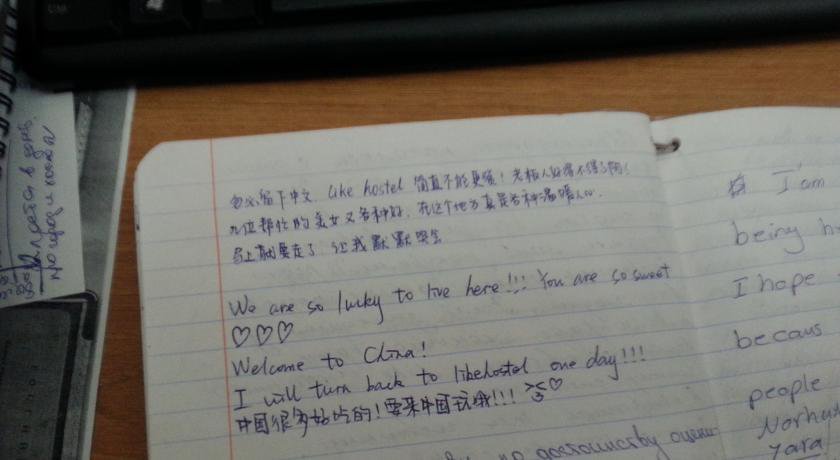 勿必留下中文. Like hostel 简直不能更赞！老板人好得不得了啊！
几位帮忙的美女又各种好，在这个地方真是各种温暖人心.
马上就要走了 让我默默哭会
We are so lucky to live here!!! You are so sweet
♡♡♡
Welcome to China!
I will turn back to likehostel one day!!!
中国很多好吃的！要来中国玩哦!!! >3<♡
I am
being
I hope
becaus
people
Yara